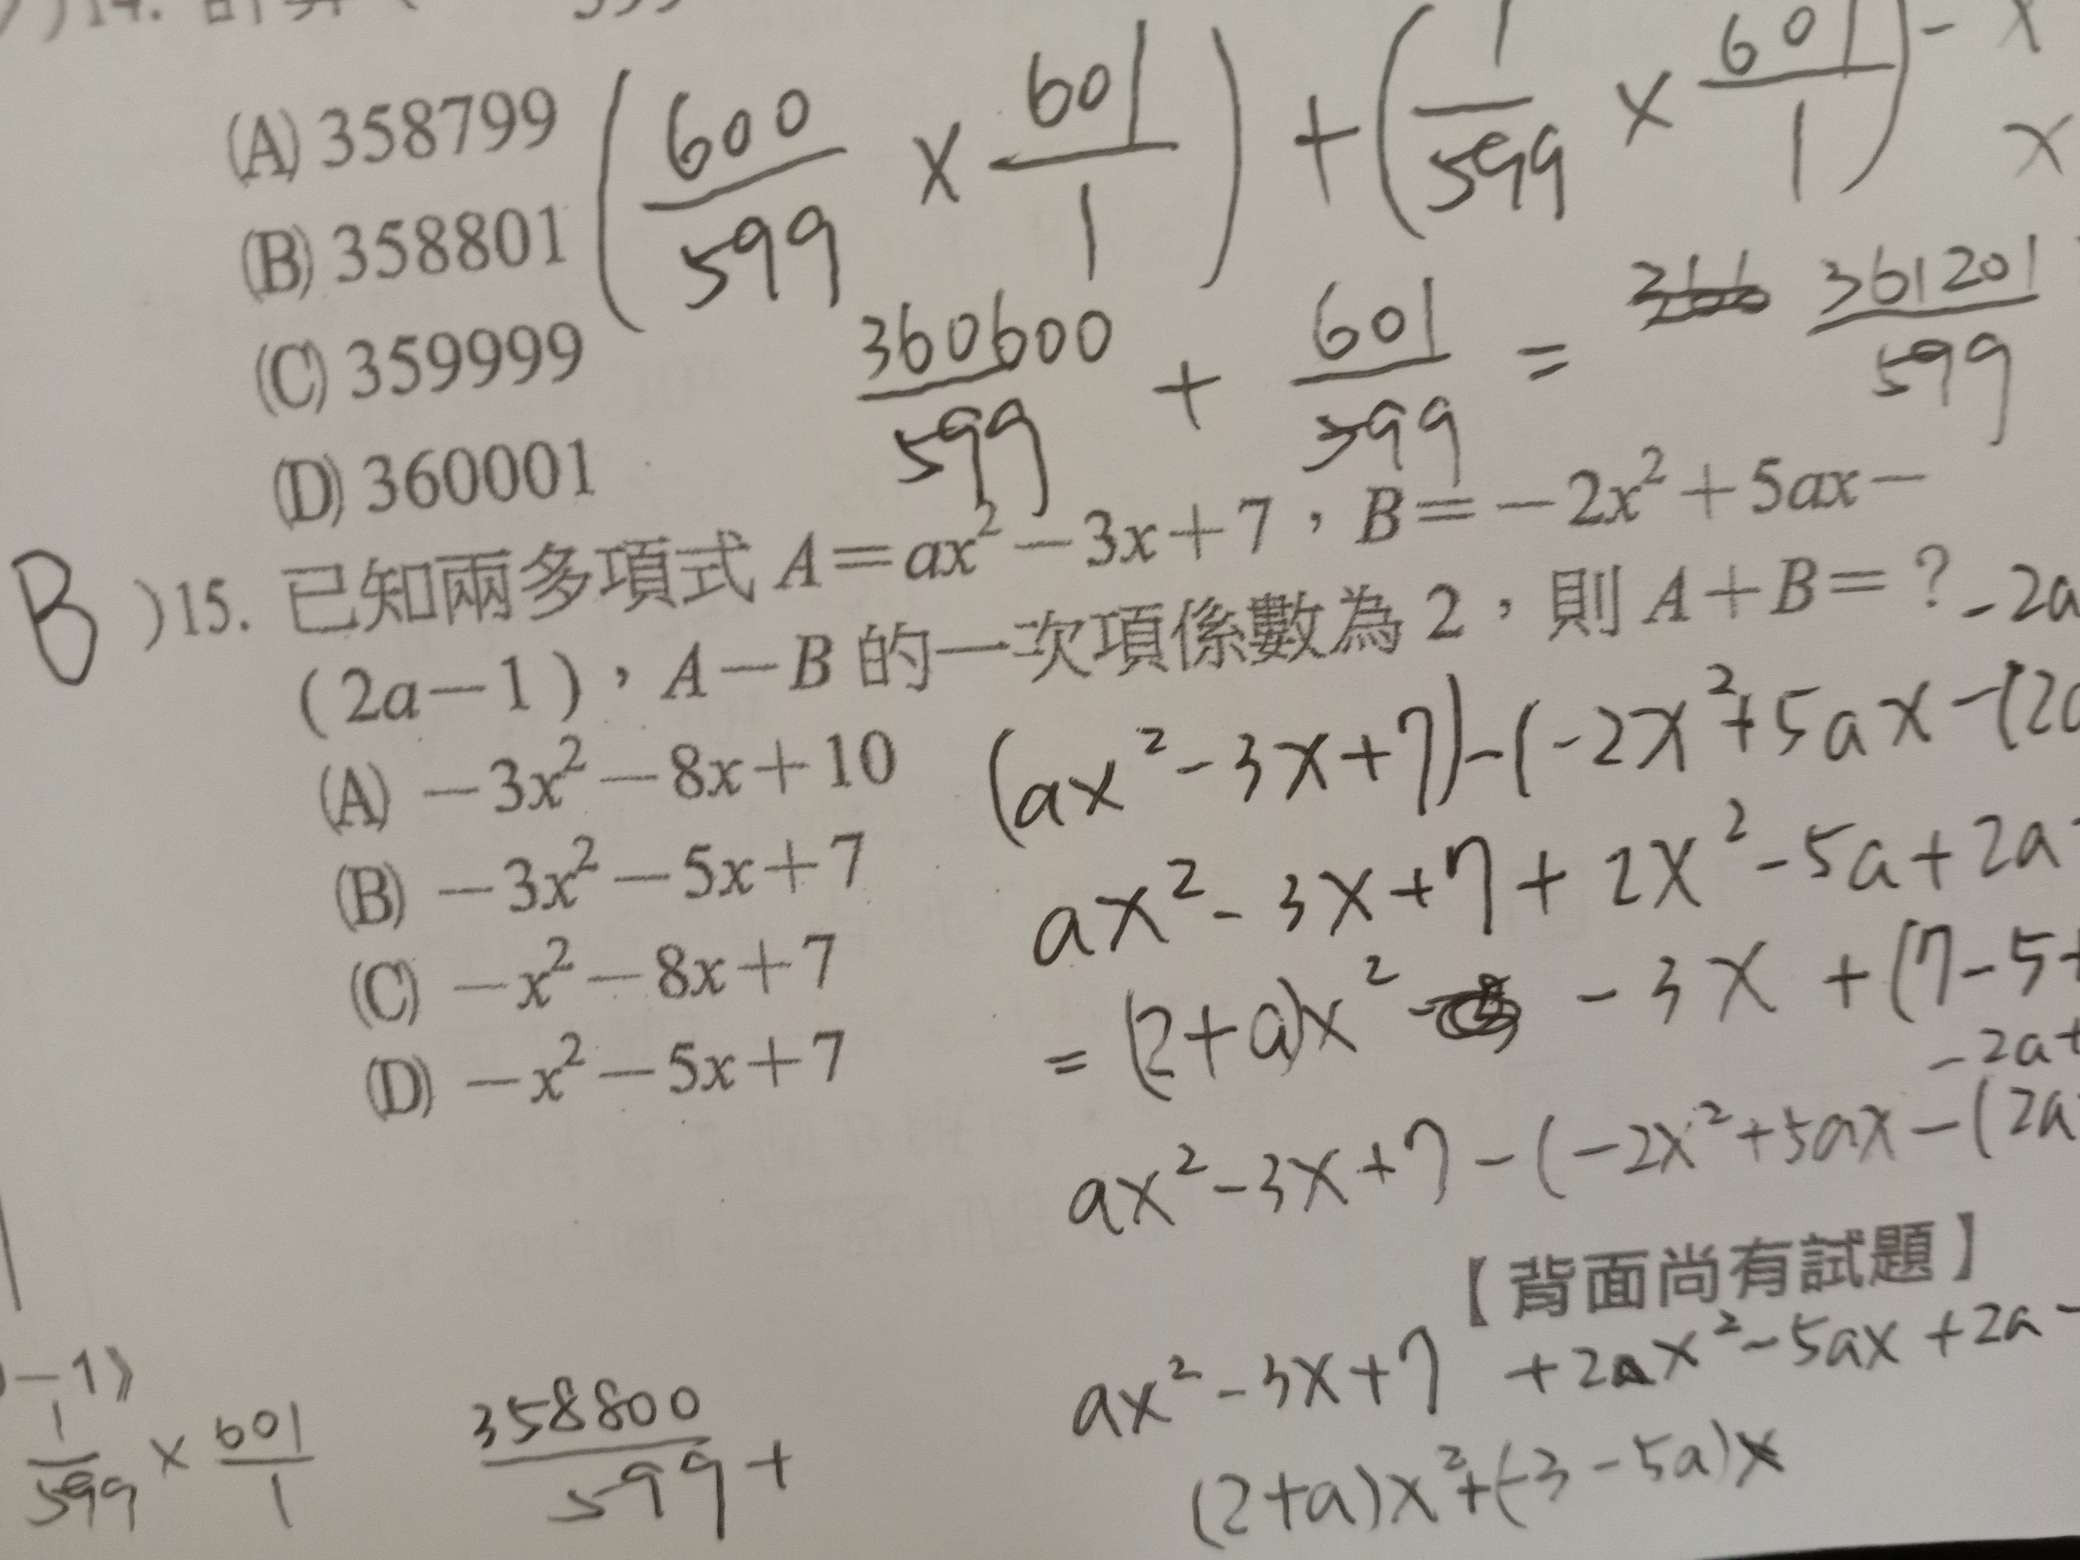 )14.
(A) 358799
(B) 358801
(C) 359999
(D) 360001
(600/599 × 601/1) + (1/599 × 601/1) -
360600/599 + 601/599 = 361201/599
B )15. 已知兩多項式 A＝ax²－3x＋7，B＝－2x²＋5ax－
(2a－1)，A－B 的一次項係數為 2，則 A＋B＝？
-2a
(A) －3x²－8x＋10
(B) －3x²－5x＋7
(C) －x²－8x＋7
(D) －x²－5x＋7
(ax²-3x+7)-(-2x²+5ax-(2a
ax²-3x+7+2x²-5a+2a
=(2+a)x² -3x+(7-5+
-2a+
ax²-3x+7-(-2x²+5ax-(2a
【背面尚有試題】
ax²-3x+7 +2x²-5ax+2a-
(2+a)x²+(-3-5a)x
－1》
1/599 × 601/1
358800/599 +